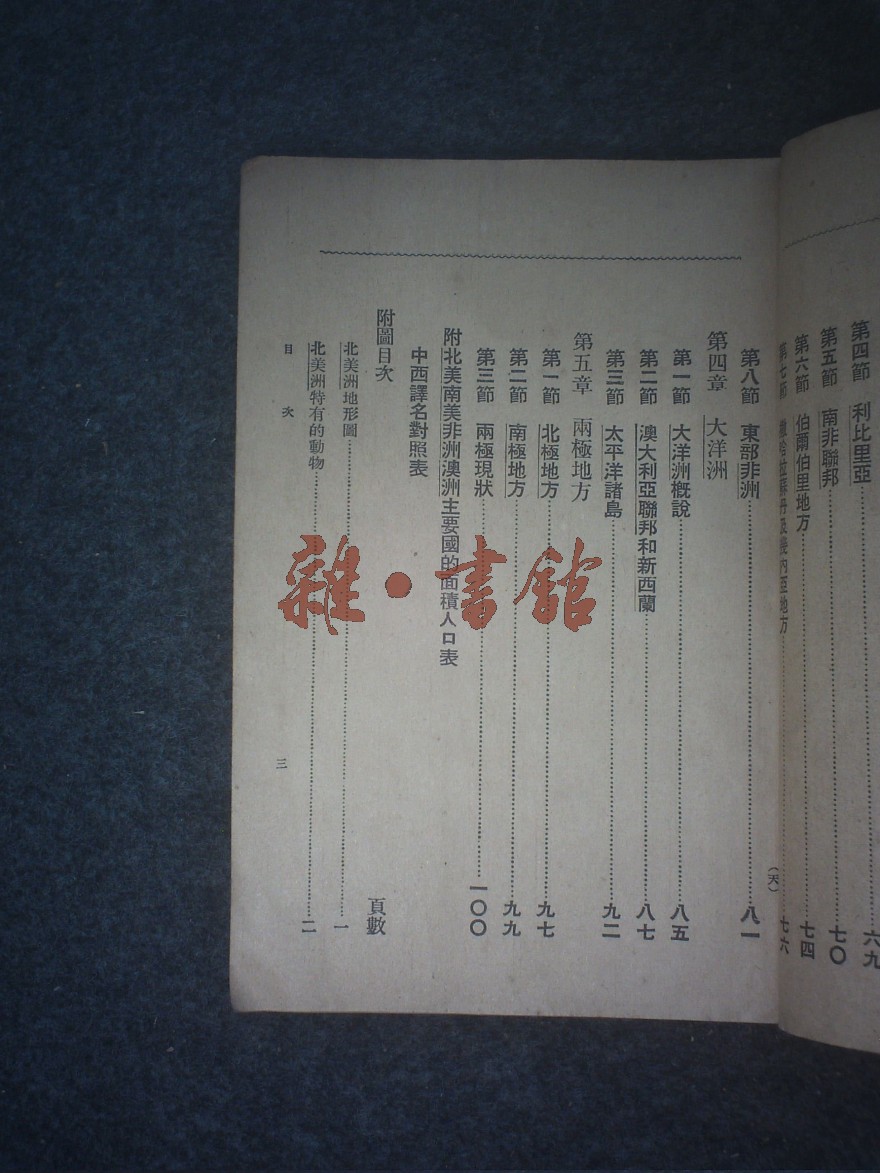 第四節　利比里亞……六九
第五節　南非聯邦……七〇
第六節　伯爾伯里地方……七四
第七節　撒哈拉蘇丹及幾內亞地方……七六
(天)
第八節　東部非洲……八一
第四章　大洋洲
第一節　大洋洲槪說……八五
第二節　澳大利亞聯邦和新西蘭……八七
第三節　太平洋諸島……九二
第五章　兩極地方
第一節　北極地方……九七
第二節　南極地方……九九
第三節　兩極現狀……一〇〇
附北美南美非洲澳洲主要國的面積人口表
中西譯名對照表
附圖目次　頁數
北美洲地形圖……一
北美洲特有的動物……二
目次　三
雜·書館